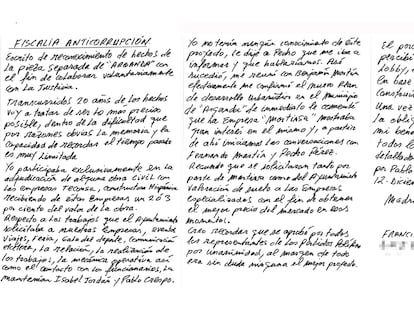 FISCALÍA ANTICORRUPCIÓN
Escrito de reconocimiento de hechos de
la pieza separada de "ARGANDA" con
el fin de colaborar voluntariamente
con la Justicia.
Transcurridos 20 años de los hechos
voy a tratar de ser lo más preciso
posible, dentro de la dificultad que
por razones obvias la memoria, y la
capacidad de recordar el tiempo pasado
es muy limitada
Yo participaba exclusivamente en la
adjudicación de alguna obra civil con
las empresas Teconsa, constructora Hispánica
Recibiendo de estas Empresas un 2 ó 3
por ciento del valor de la obra.
Respecto a los trabajos que el Ayuntamiento
solicitaba a nuestras Empresas, eventos
viajes, Feria, Gala del deporte, Comunicación
la relación, la realización de
los trabajos, la mecánica operativa así
como el contacto con los funcionarios, la
mantenían Isabel Jordán y Pablo Crespo.
Yo no tenía ningún conocimiento de este
proyecto, le dije a Pedro que me iba a
informar y que hablaríamos. Así
sucedió, me reuní con Benjamín Martín
efectivamente me confirmó el nuevo Plan
de desarrollo urbanístico en el Municipio
de "Arganda" de inmediato le comenté
que la Empresa "Martinsa" mostraba
gran interés en el mismo y, a partir
de ahí iniciamos las conversaciones con
Fernando Martín y Pedro Pérez.
Recuerdo que se solicitaron tanto por
parte de martinsa como del Ayuntamiento
valoración de suelo a las Empresas
especializadas con el fin de obtener
el mejor precio del mercado en esos
momentos.
Creo recordar que se aprobó por todos
los representantes de los Partidos Políticos
por unanimidad, al margen de todo
era sin duda ninguna el mejor proyecto.
El po
percibi
Lobby,
la base
Constru
una ve
la obli
mi ben
Todos l
detallado
por Pablo
12. Dicie
Madr
FRANC